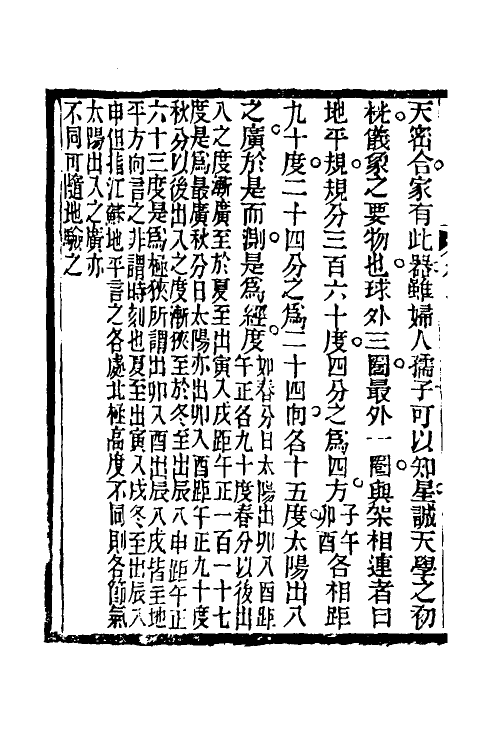 天密合家有此器雖婦人孺子可以知星誠天學之初
桄儀象之要物也球外三圈最外一圈與架相連者曰
地平規規分三百六十度四分之爲四方子午卯酉各相距
九十度二十四分之爲二十四向各十五度太陽出入
之廣於是而測是爲經度如春分日太陽出卯入酉距
午正各九十度春分以後出
入之度漸廣至於夏至出寅入戌距午正一百一十七
度是爲最廣秋分日太陽亦出卯入酉距午正九十度
秋分以後出入之度漸狹至於冬至出辰入申距午正
六十三度是爲極狹所謂出卯入酉出辰入戌皆至地
平方向言之非謂時刻也夏至出寅入戌冬至出辰入
申但指江蘇地平言之各處北極高度不同則各節氣
太陽出入之廣亦
不同可隨地驗之